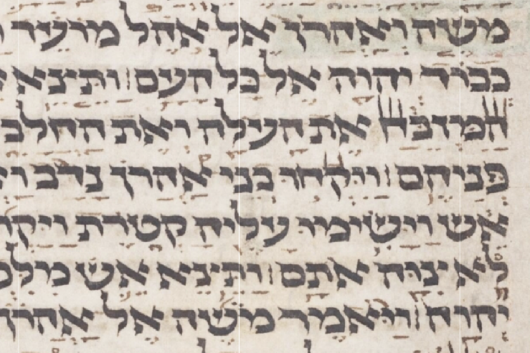 משה ואהרן אל אהל מועד
כבוד יהוה אל כל העם ותצא
המזבח את העלה ואת החלב
פניהם ויקחו בני אהרן נדב
אש וישימו עליה קטרת
לא צוה אתם ותצא אש
יהוה ויאמר משה אל אהרן